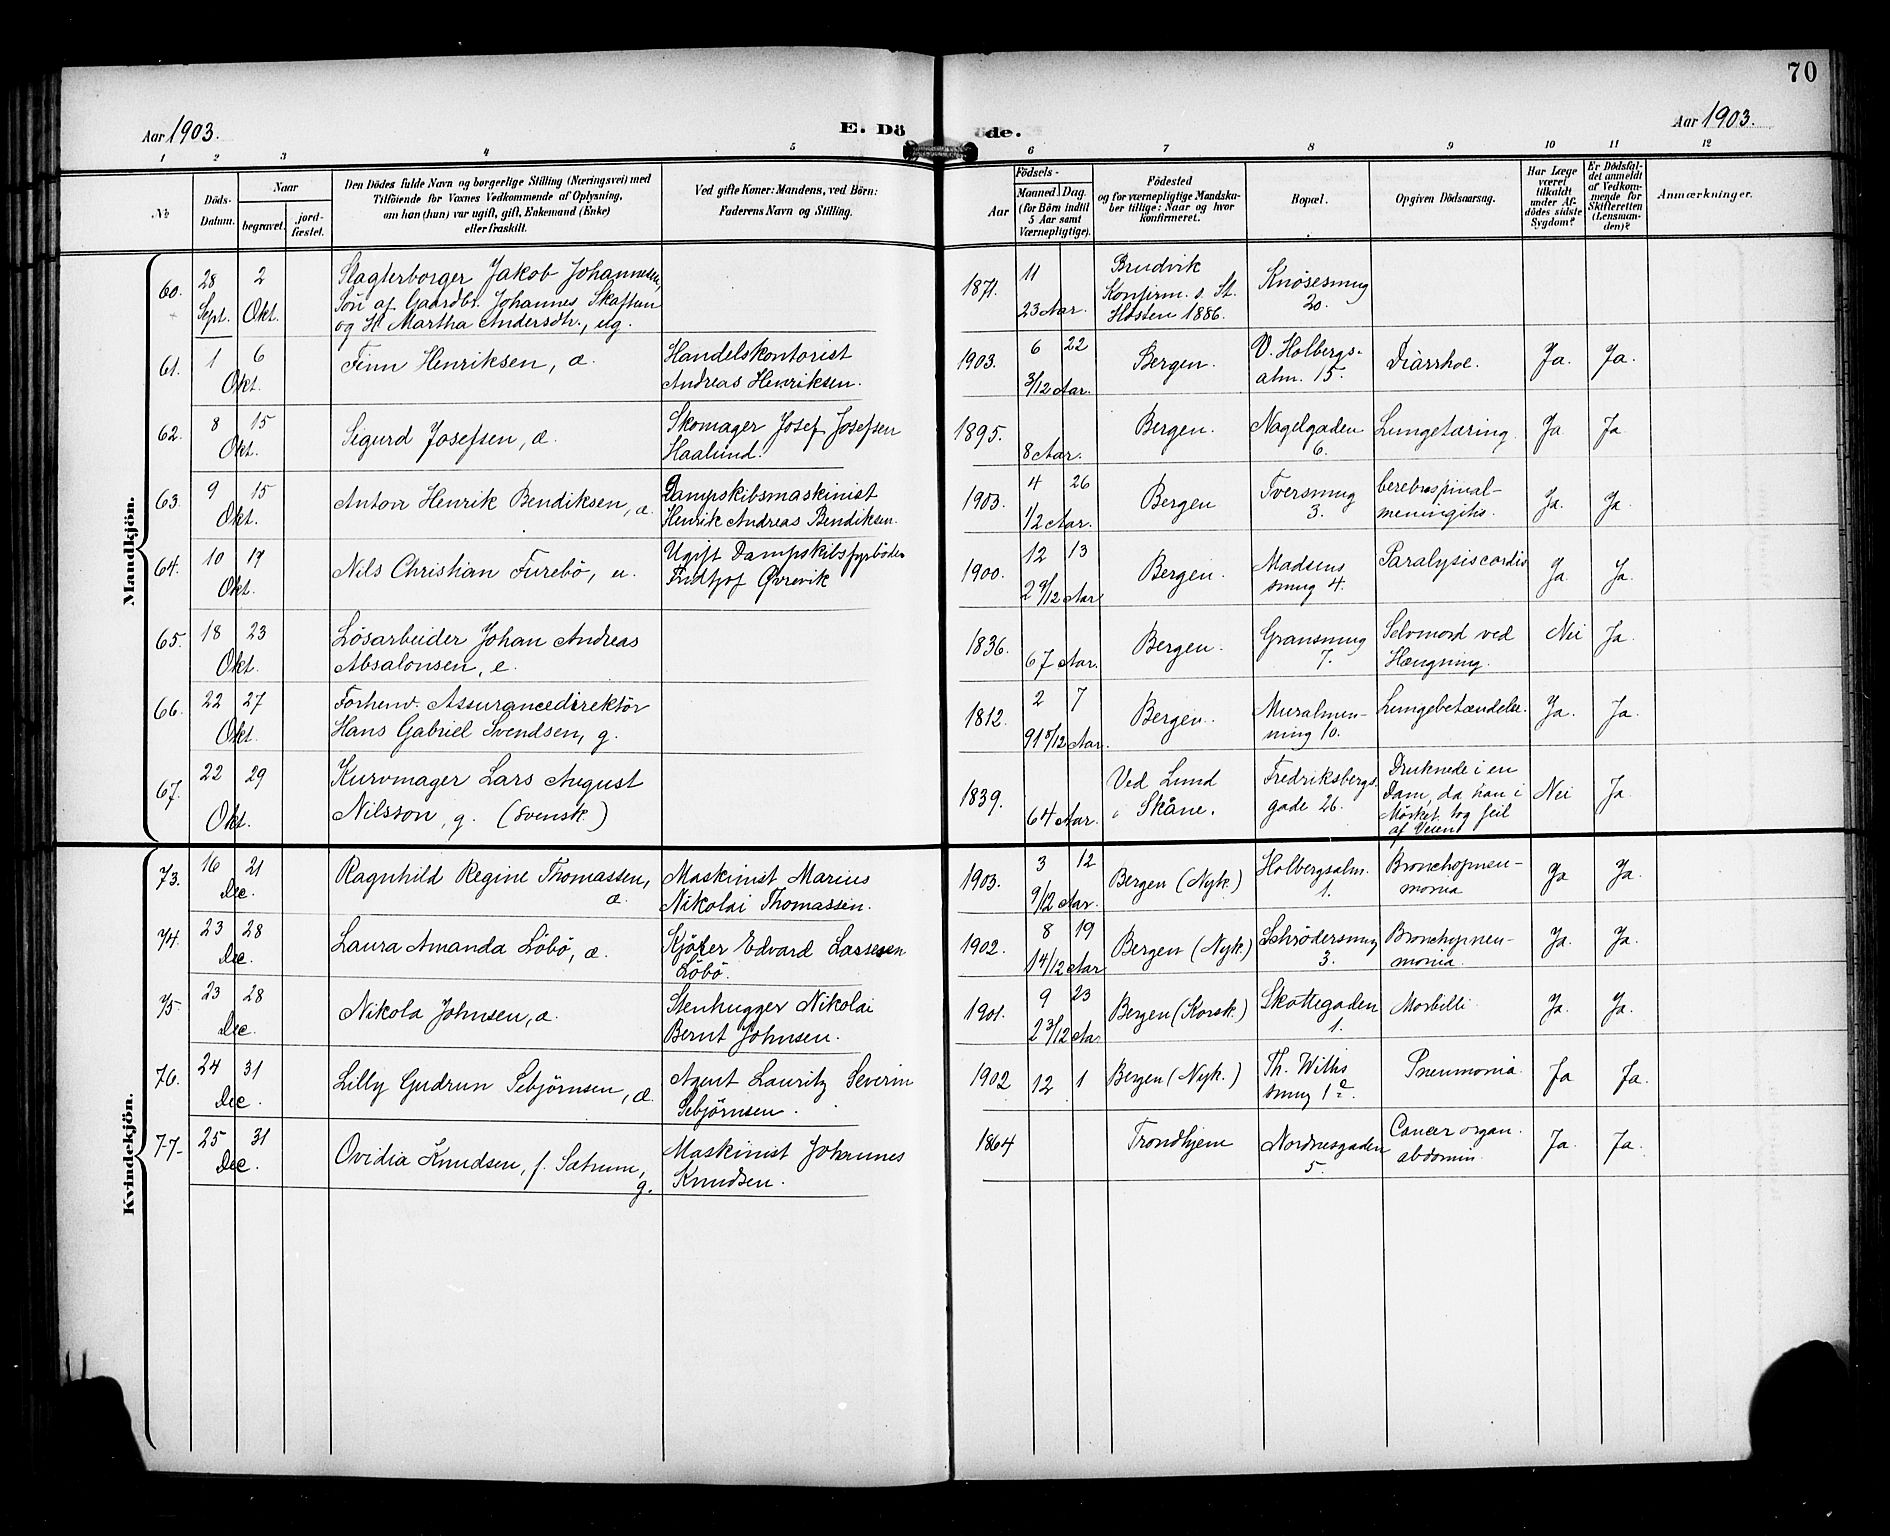 70
Aar 1903.
E. Döde.
Aar 1903.
1 2 3 4 5 6 7 8 9 10 11 12
No
Döds-Datum.
Naar
begravet.
jord-fæstet.
Den Dödes fulde Navn og borgerlige Stilling (Næringsvei) med
Tilföiende for Voxnes Vedkommende af Oplysning,
om han (hun) var ugift, gift, Enkemand (Enke)
eller fraskilt.
Ved gifte Koner: Mandens, ved Börn:
Faderens Navn og Stilling.
Födsels-
Aar
Maaned
Dag.
(for Börn indtil
5 Aar samt
Værnepligtige).
Födested
og for værnepligtige Mandska-
ber tillige: Naar og hvor
konfirmeret.
Bopæl.
Opgiven Dödsaarsag.
Har Læge
været
tilkaldt
under Af-
dödes sidste
Sygdom?
Er Dödsfal-
det anmeldt
af Vedkom-
mende for
Skifteretten
(Lensman-
den)?
Anmærkninger.
Mandkjön.
60. 28 Sept. 2 Okt.
Slagterborger Jakob Johannesen,
Sön af Gaardbr. Johannes Skaftun
og H. Martha Andersdtr., ug.
1871. 11
23 Aar.
Bruvik
Konfirm. s. St.
Høsten 1886.
Knösesmug
20.
61. 1 6 Okt.
Finn Henriksen, æ.
Handelskontorist
Andreas Henriksen.
1903. 6 22
3/12 Aar.
Bergen.
V. Holbergs-
alm. 15.
Diarrhoe.
Ja. Ja.
62. 8 15 Okt.
Sigurd Josefsen, æ.
Skomager Josef Josefsen
Haalund.
1895.
8 Aar.
Bergen.
Nagelgaden
6.
Lungetæring.
Ja Ja.
63. 9 15 Okt.
Anton Henrik Bendiksen, æ.
Dampskibsmaskinist
Henrik Andreas Bendiksen.
1903. 4 26
1/2 Aar.
Bergen
Tversmug
3.
Cerebrospinal-
meningitis.
Ja. Ja.
64. 10 17 Okt.
Nils Christian Furebö, u.
Ugift Dampskibsfyrböder
Fridtjof Øvrevik
1900. 12 13
2 9/12 Aar
Bergen.
Madsens
smug 4.
Paralysis cordis
Ja Ja.
65. 18 23 Okt.
Lösarbeider Johan Andreas
Absalonsen, e.
1836.
67 Aar.
Bergen.
Gransmug
7.
Selvmord ved
Hængning.
Nei Ja.
66. 22 27 Okt.
Forhenv. Assurancedirektör
Hans Gabriel Svendsen, g.
1812. 2 7
91 8/12 Aar.
Bergen.
Muralmen-
ning 10.
Lungebetændelse.
Ja. Ja.
67. 22 29 Okt.
Kurvmager Lars August
Nilsson, g. (svensk)
1839.
64 Aar.
Ved Lund
i Skåne.
Fredriksbergs
gade 26.
Druknede i en
Dam, da han i
Mørket tog feil
af Veien
Nei Ja.
Kvindekjön.
73. 16 21 Dec.
Ragnhild Regine Thomassen,
æ.
Maskinist Marius
Nikolai Thomassen.
1903. 3 12
9/12 Aar.
Bergen (Nyk.)
Holbergsalm.
1.
Bronchopneu-
monia
Ja Ja.
74. 23 28 Dec.
Laura Amanda Löbö, æ.
Kjører Edvard Lassesen
Löbö.
1902. 8 19
1 4/12 Aar
Bergen (Nyk.)
Schrödersmug
3.
Bronchopneu-
monia.
Ja. Ja.
75. 23 28 Dec.
Nikola Johnsen, æ.
Stenhugger Nikolai
Bernt Johnsen.
1901. 9 23
2 3/12 Aa.
Bergen (Korsk.)
Skottegaden
1.
Morbilli
Ja. Ja.
76. 24 31 Dec.
Lilly Gudrun Sebjörnsen, æ.
Agent Lauritz Severin
Sebjörnsen.
1902 12 1
Bergen (Nyk.)
Th. Withs
smug 1a.
Pneumonia.
Ja Ja.
77. 25 31 Dec.
Ovidia Knudsen, f. Sætrum,
g.
Maskinist Johannes
Knudsen.
1864
Trondhjem
Nordnesgaden
5.
Cancer organ.
abdomin.
Ja. Ja.